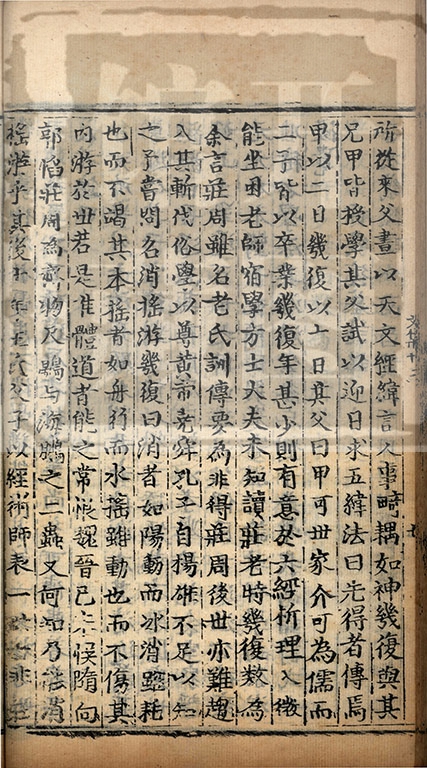 所從來父晝以天文經緯言人事畸耦如神幾復與其
兄甲皆授學其父試以迎日求五緯法曰先得者傳焉
甲以二日幾復以七日其父曰甲可世家介可為儒而
二子皆以卒業幾復年甚少則有意於六經析理入微
能坐困老師宿學方士大夫未知讀莊老時幾復數為
余言莊周雖名老氏訓傳要為非得莊周後世亦難趨
入其斬伐俗學以尊黃帝堯舜孔子自揚雄不足以知
之予嘗問名消搖游幾復曰消者如陽動而冰消雖耗
也而不竭其本搖者如舟行而水搖雖動也而不傷其
內游於世若是唯體道者能之常恨魏晉已來悞隨向
郭陷莊周為齊物尺鷃与海鵬之二蟲又何知乃能消
搖游乎其後十年王氏父子以經術師表一